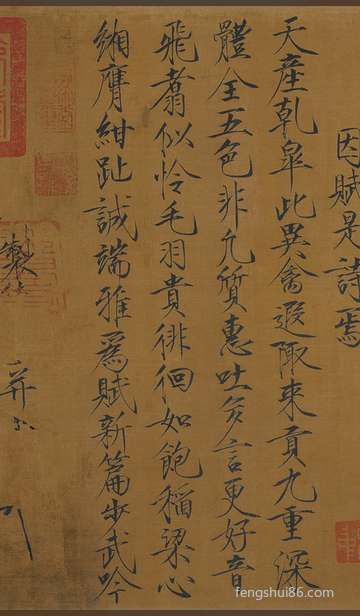 因賦是詩焉
天產乾皋此異禽遐陬來貢九重深
體全五色非凡質惠吐多言更好音
飛翥似怜毛羽貴徘徊如飽稻粱心
緗膺紺趾誠端雅爲賦新篇步武吟
製
fengshui86.com